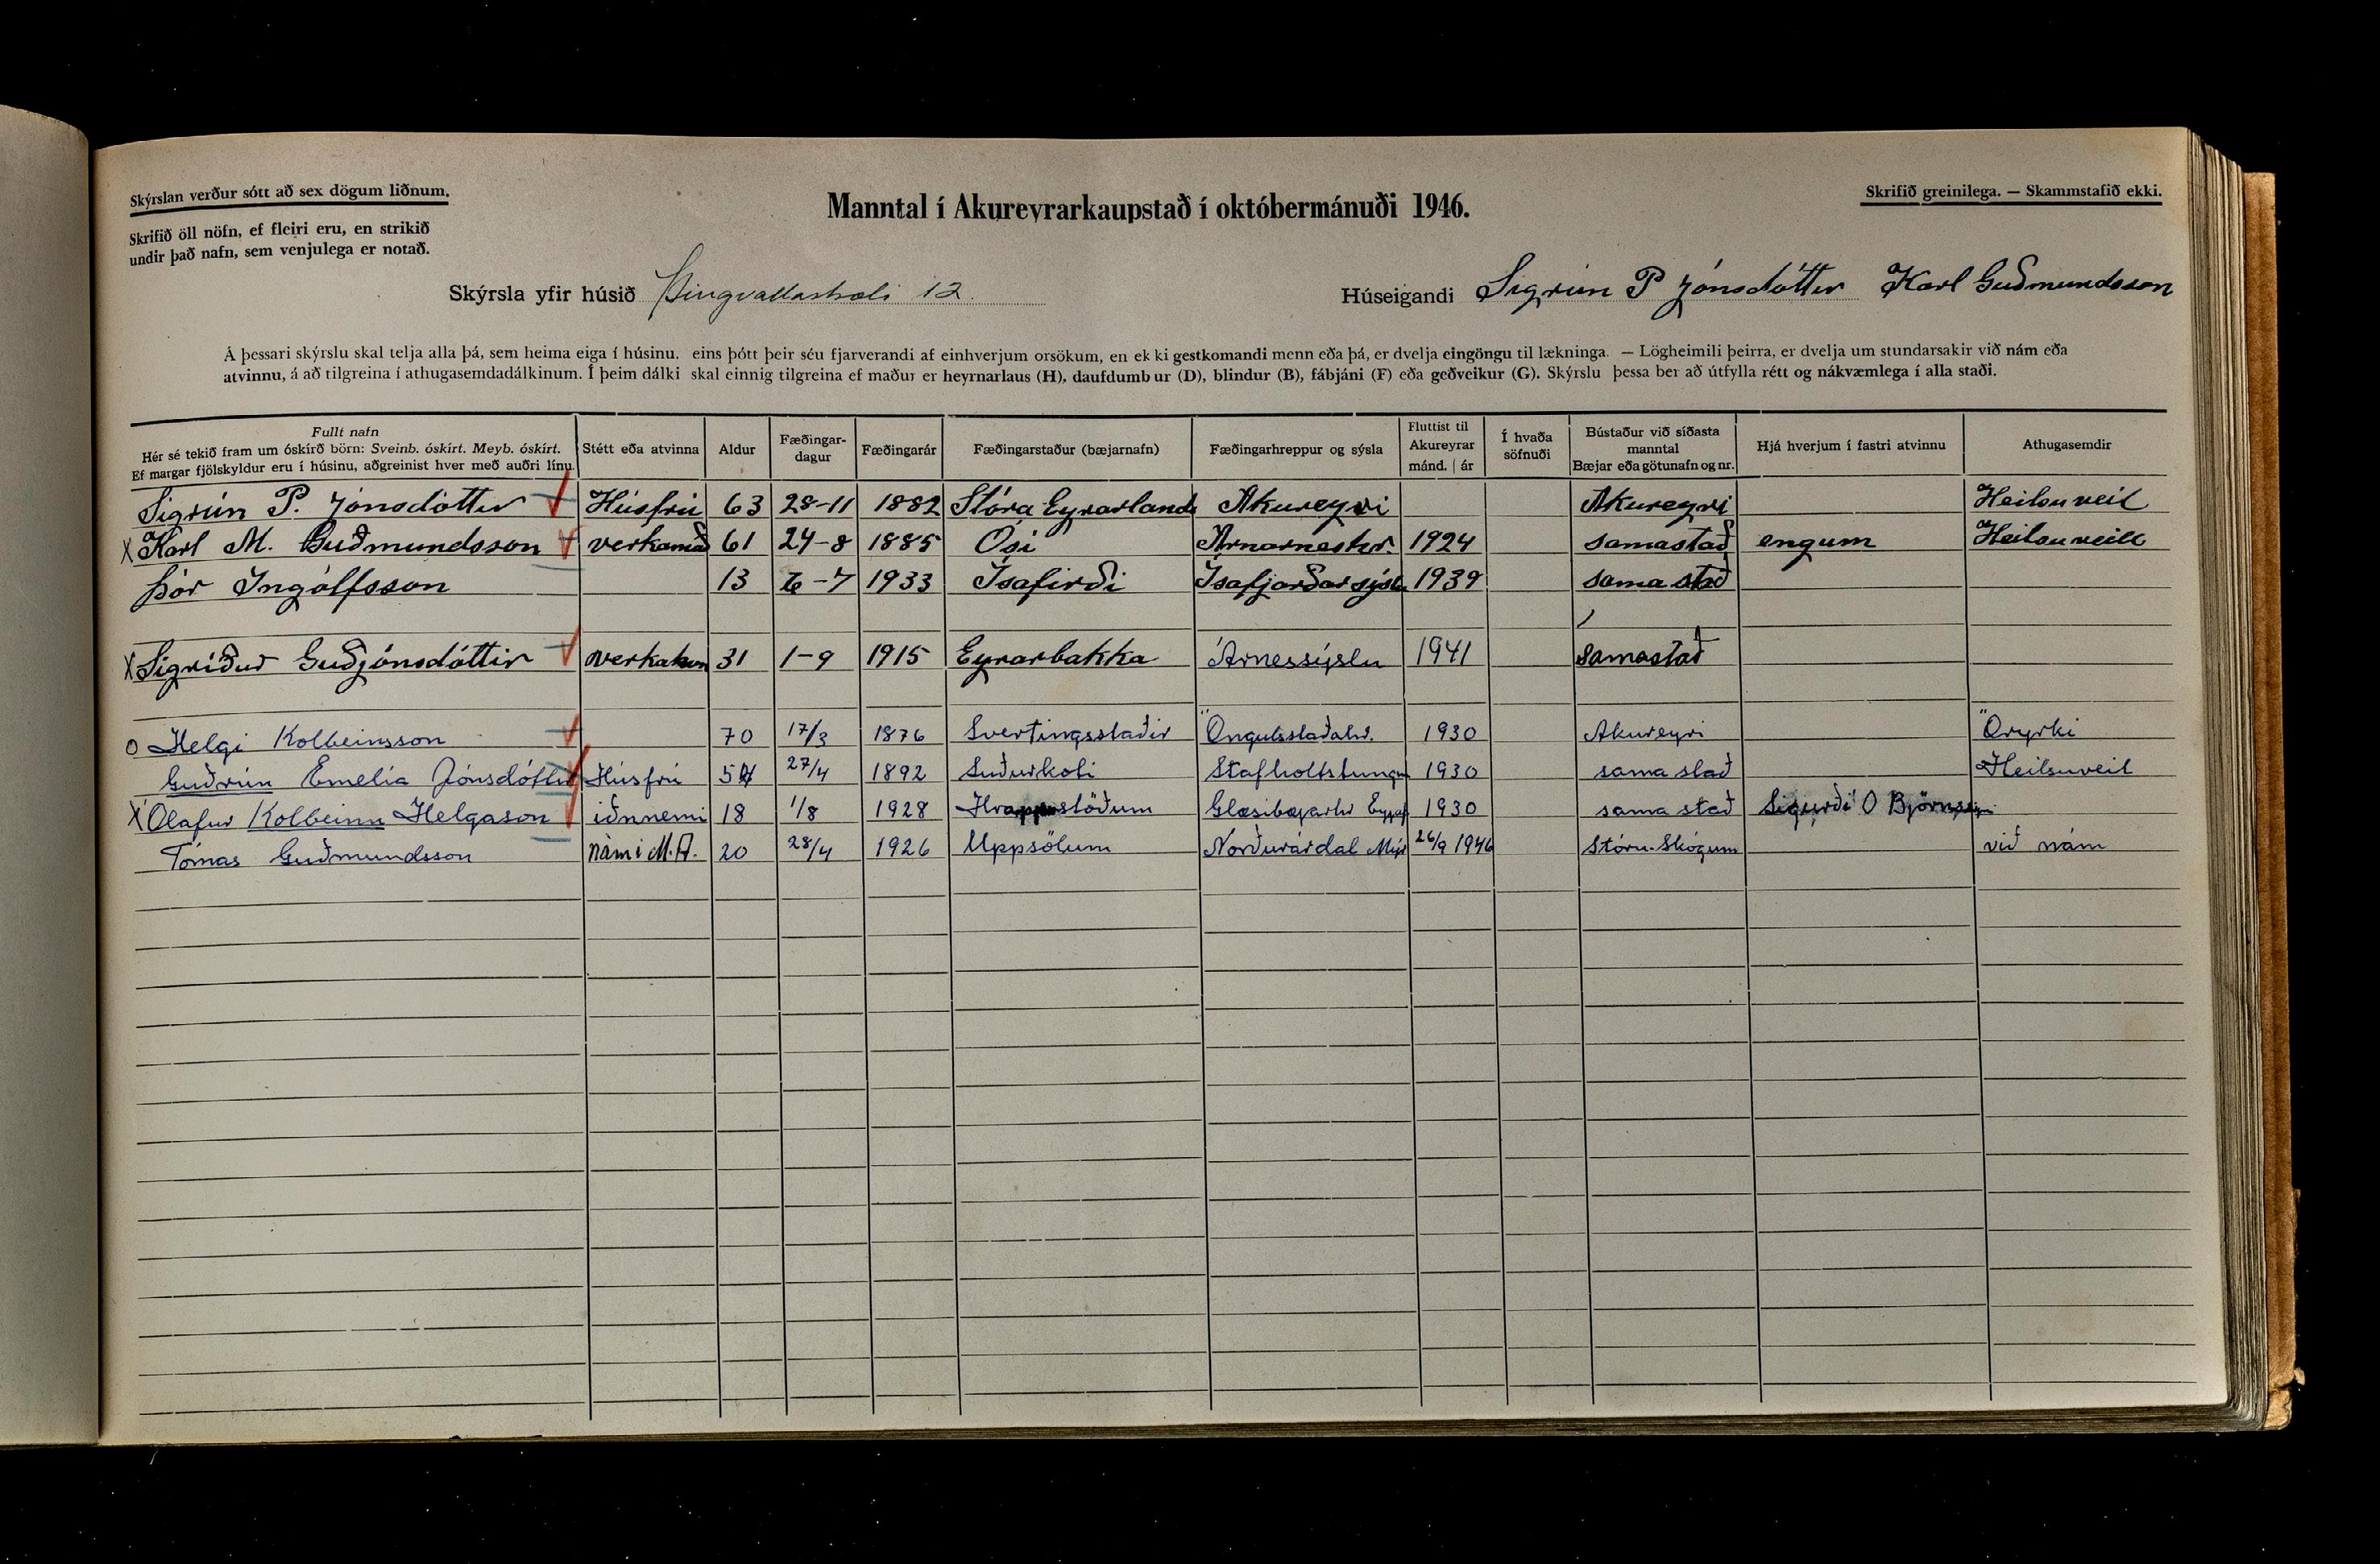 Skýrslan verður sótt að sex dögum liðnum.
Skrifið öll nöfn, ef fleiri eru, en strikið
undir það nafn, sem venjulega er notað.
Manntal í Akureyrarkaupstað í októbermánuði 1946.
Skrifið greinilega. — Skammstafið ekki.
Skýrsla yfir húsið Þingvallastræti 12.
Húseigandi Sigrún P Jónsdóttir Karl Guðmundsson
Á þessari skýrslu skal telja alla þá, sem heima eiga í húsinu. eins þótt þeir séu fjarverandi af einhverjum orsökum, en ekki gestkomandi menn eða þá, er dvelja eingöngu til lækninga. — Lögheimili þeirra, er dvelja um stundarsakir við nám eða
atvinnu, á að tilgreina í athugasemdadálkinum. Í þeim dálki skal einnig tilgreina ef maður er heyrnarlaus (H), daufdumbur (D), blindur (B), fábjáni (F) eða geðveikur (G). Skýrslu þessa ber að útfylla rétt og nákvæmlega í alla staði.
Fullt nafn
Hér sé tekið fram um óskírð börn: Sveinb. óskírt. Meyb. óskírt.
Ef margar fjölskyldur eru í húsinu, aðgreinist hver með auðri línu.
Stétt eða atvinna
Aldur
Fæðingar-
dagur
Fæðingarár
Fæðingarstaður (bæjarnafn)
Fæðingarhreppur og sýsla
Fluttist til
Akureyrar
mánd. | ár
Í hvaða
söfnuði
Bústaður við síðasta
manntal
Bæjar eða götunafn og nr.
Hjá hverjum í fastri atvinnu
Athugasemdir
Sigrún P. Jónsdóttir Húsfrú 63 28-11 1882 Stóra Eyrarlandi Akureyri Akureyri Heilsuveil
X Karl M. Guðmundsson verkamað 61 24-8 1885 Ósi Arnarneshr. 1924 samastað engum Heilsuveill
Þór Ingólfsson 13 6-7 1933 Ísafirði Ísafjarðarsýsl 1939 sama stað
X Sigríður Guðjónsdóttir verkakon 31 1-9 1915 Eyrarbakka Árnessýslu 1941 samastað
O Helgi Kolbeinsson 70 17/3 1876 Svertingsstaðir Öngulsstaðahr. 1930 Akureyri Öryrki
Guðrún Emelía Jónsdóttir Húsfrú 54 27/4 1892 Stafholtstungum 1930 sama stað Heilsuveil
X Ólafur Kolbeinn Helgason iðnnemi 18 1/8 1928 Hrappsstöðum Glæsibæjarhr Eyjaf 1930 sama stað Sigurði O Björnssyni
Tómas Guðmundsson nám í M.A. 20 28/4 1926 Uppsölum Norðurárdal Mýr 26/9 1946 Stóru-Skógum við nám